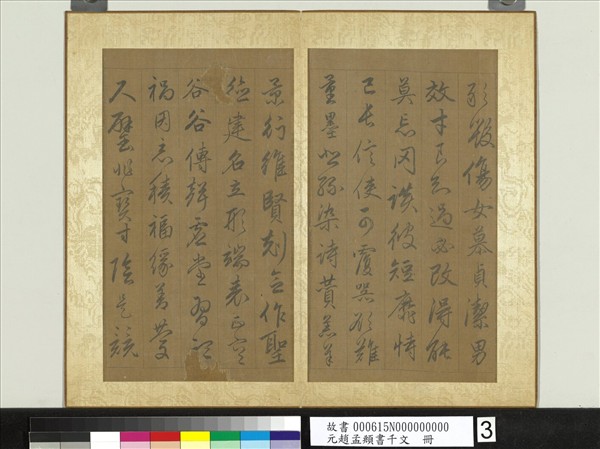 敢毀傷女慕貞潔男
效才良知過必改得能
莫忘罔談彼短靡恃
己長信使可覆器欲難
量墨悲絲染詩讚羔羊
景行維賢剋念作聖
德建名立形端表正空
谷谷傳聲虛堂習聽
禍因惡積福緣善慶
尺璧非寶寸陰是競
故書 000615N000000000
元趙孟頫書千文 冊
3